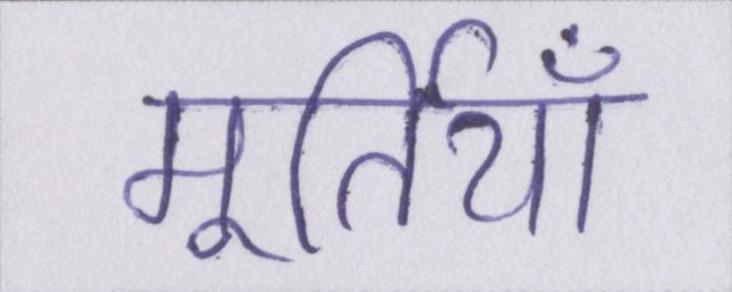 मूर्तियाँ